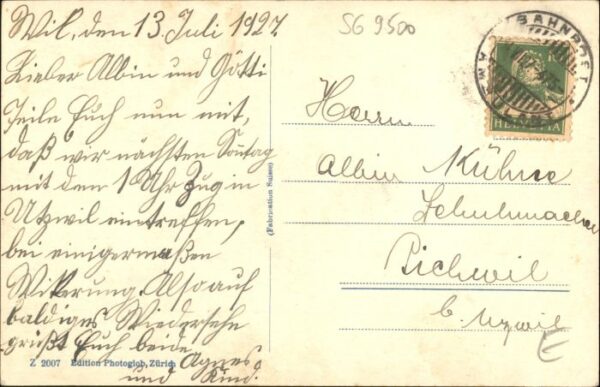 Wil, den 13. Juli 1927.
Lieber Albin und Götti
Teile Euch nun mit,
daß wir nächsten Sonntag
mit den 1 Uhr Zug in
Utzwil eintreffen,
bei einigermaßen
Witterung. Also auf
baldiges Wiedersehn
grüßt Euch beide
Agnes
und Kind.
Z 2007 Edition Photoglob, Zürich
(Fabrication Suisse)
SG 9500
BAHNPOST
AMBULANT
HELVETIA
Herrn
Albin Kühne
Schuhmacher
Pichwil
b. Uzwil
E